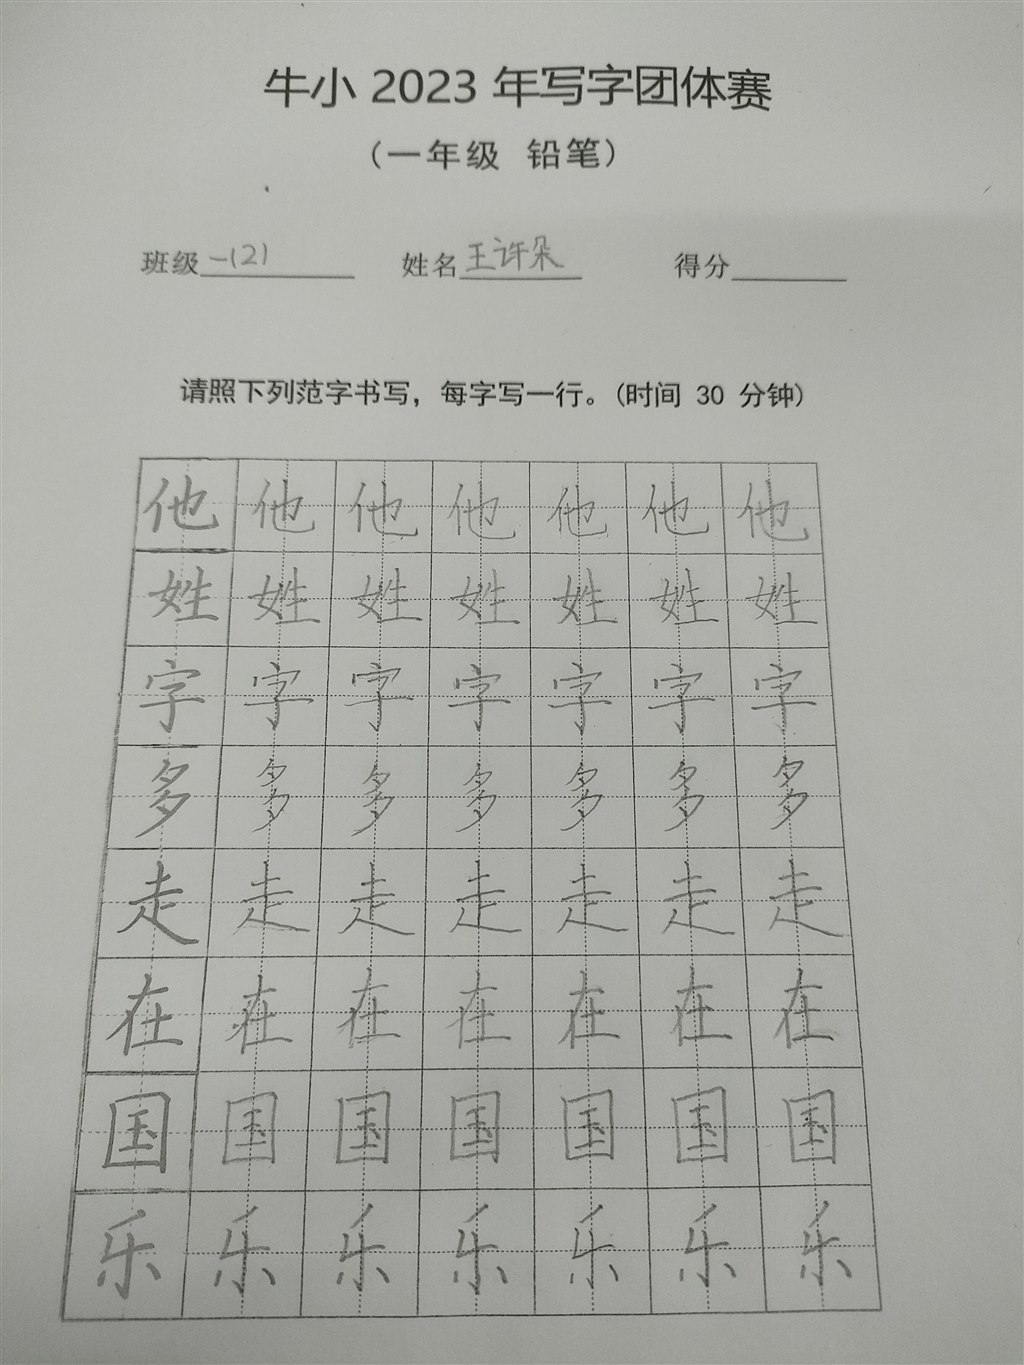 牛小 2023 年写字团体赛
（一年级 铅笔）
班级 一(2) 姓名 王许朵 得分
请照下列范字书写，每字写一行。(时间 30 分钟)
他 他 他 他 他 他 他
姓 姓 姓 姓 姓 姓 姓
字 字 字 字 字 字 字
多 多 多 多 多 多 多
走 走 走 走 走 走 走
在 在 在 在 在 在 在
国 国 国 国 国 国 国
乐 乐 乐 乐 乐 乐 乐